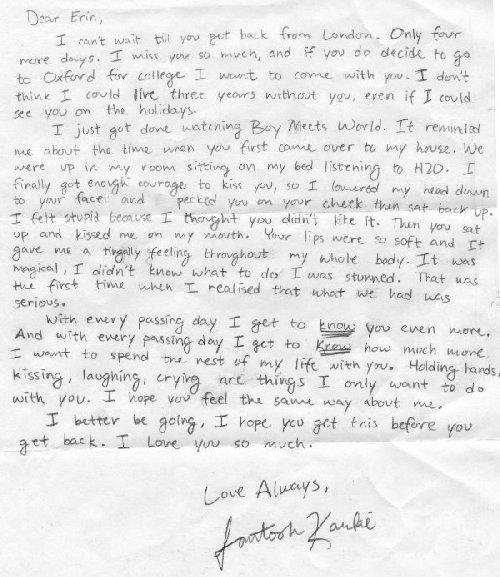 Dear Erin,
I can't wait till you get back from London. Only four
more days. I miss you so much, and if you do decide to go
to Oxford for college I want to come with you. I don't
think I could live three years without you, even if I could
see you on the holidays.
I just got done watching Boy Meets World. It reminded
me about the time when you first came over to my house. We
were up in my room sitting on my bed listening to H2O. I
finally got enough courage to kiss you, so I lowered my head down
to your face and pecked you on your check then sat back up.
I felt stupid because I thought you didn't like it. Then you sat
up and kissed me on my mouth. Your lips were so soft and It
gave me a tingally feeling throughout my whole body. It was
magical, I didn't know what to do I was stunned. That was
the first time when I realised that what we had was
serious.
With every passing day I get to know you even more.
And with every passing day I get to know how much more
I want to spend the rest of my life with you. Holding hands,
kissing, laughing, crying are things I only want to do
with you. I hope you feel the same way about me.
I better be going, I hope you get this before you
get back. I Love you so much.
Love Always,
Santosh